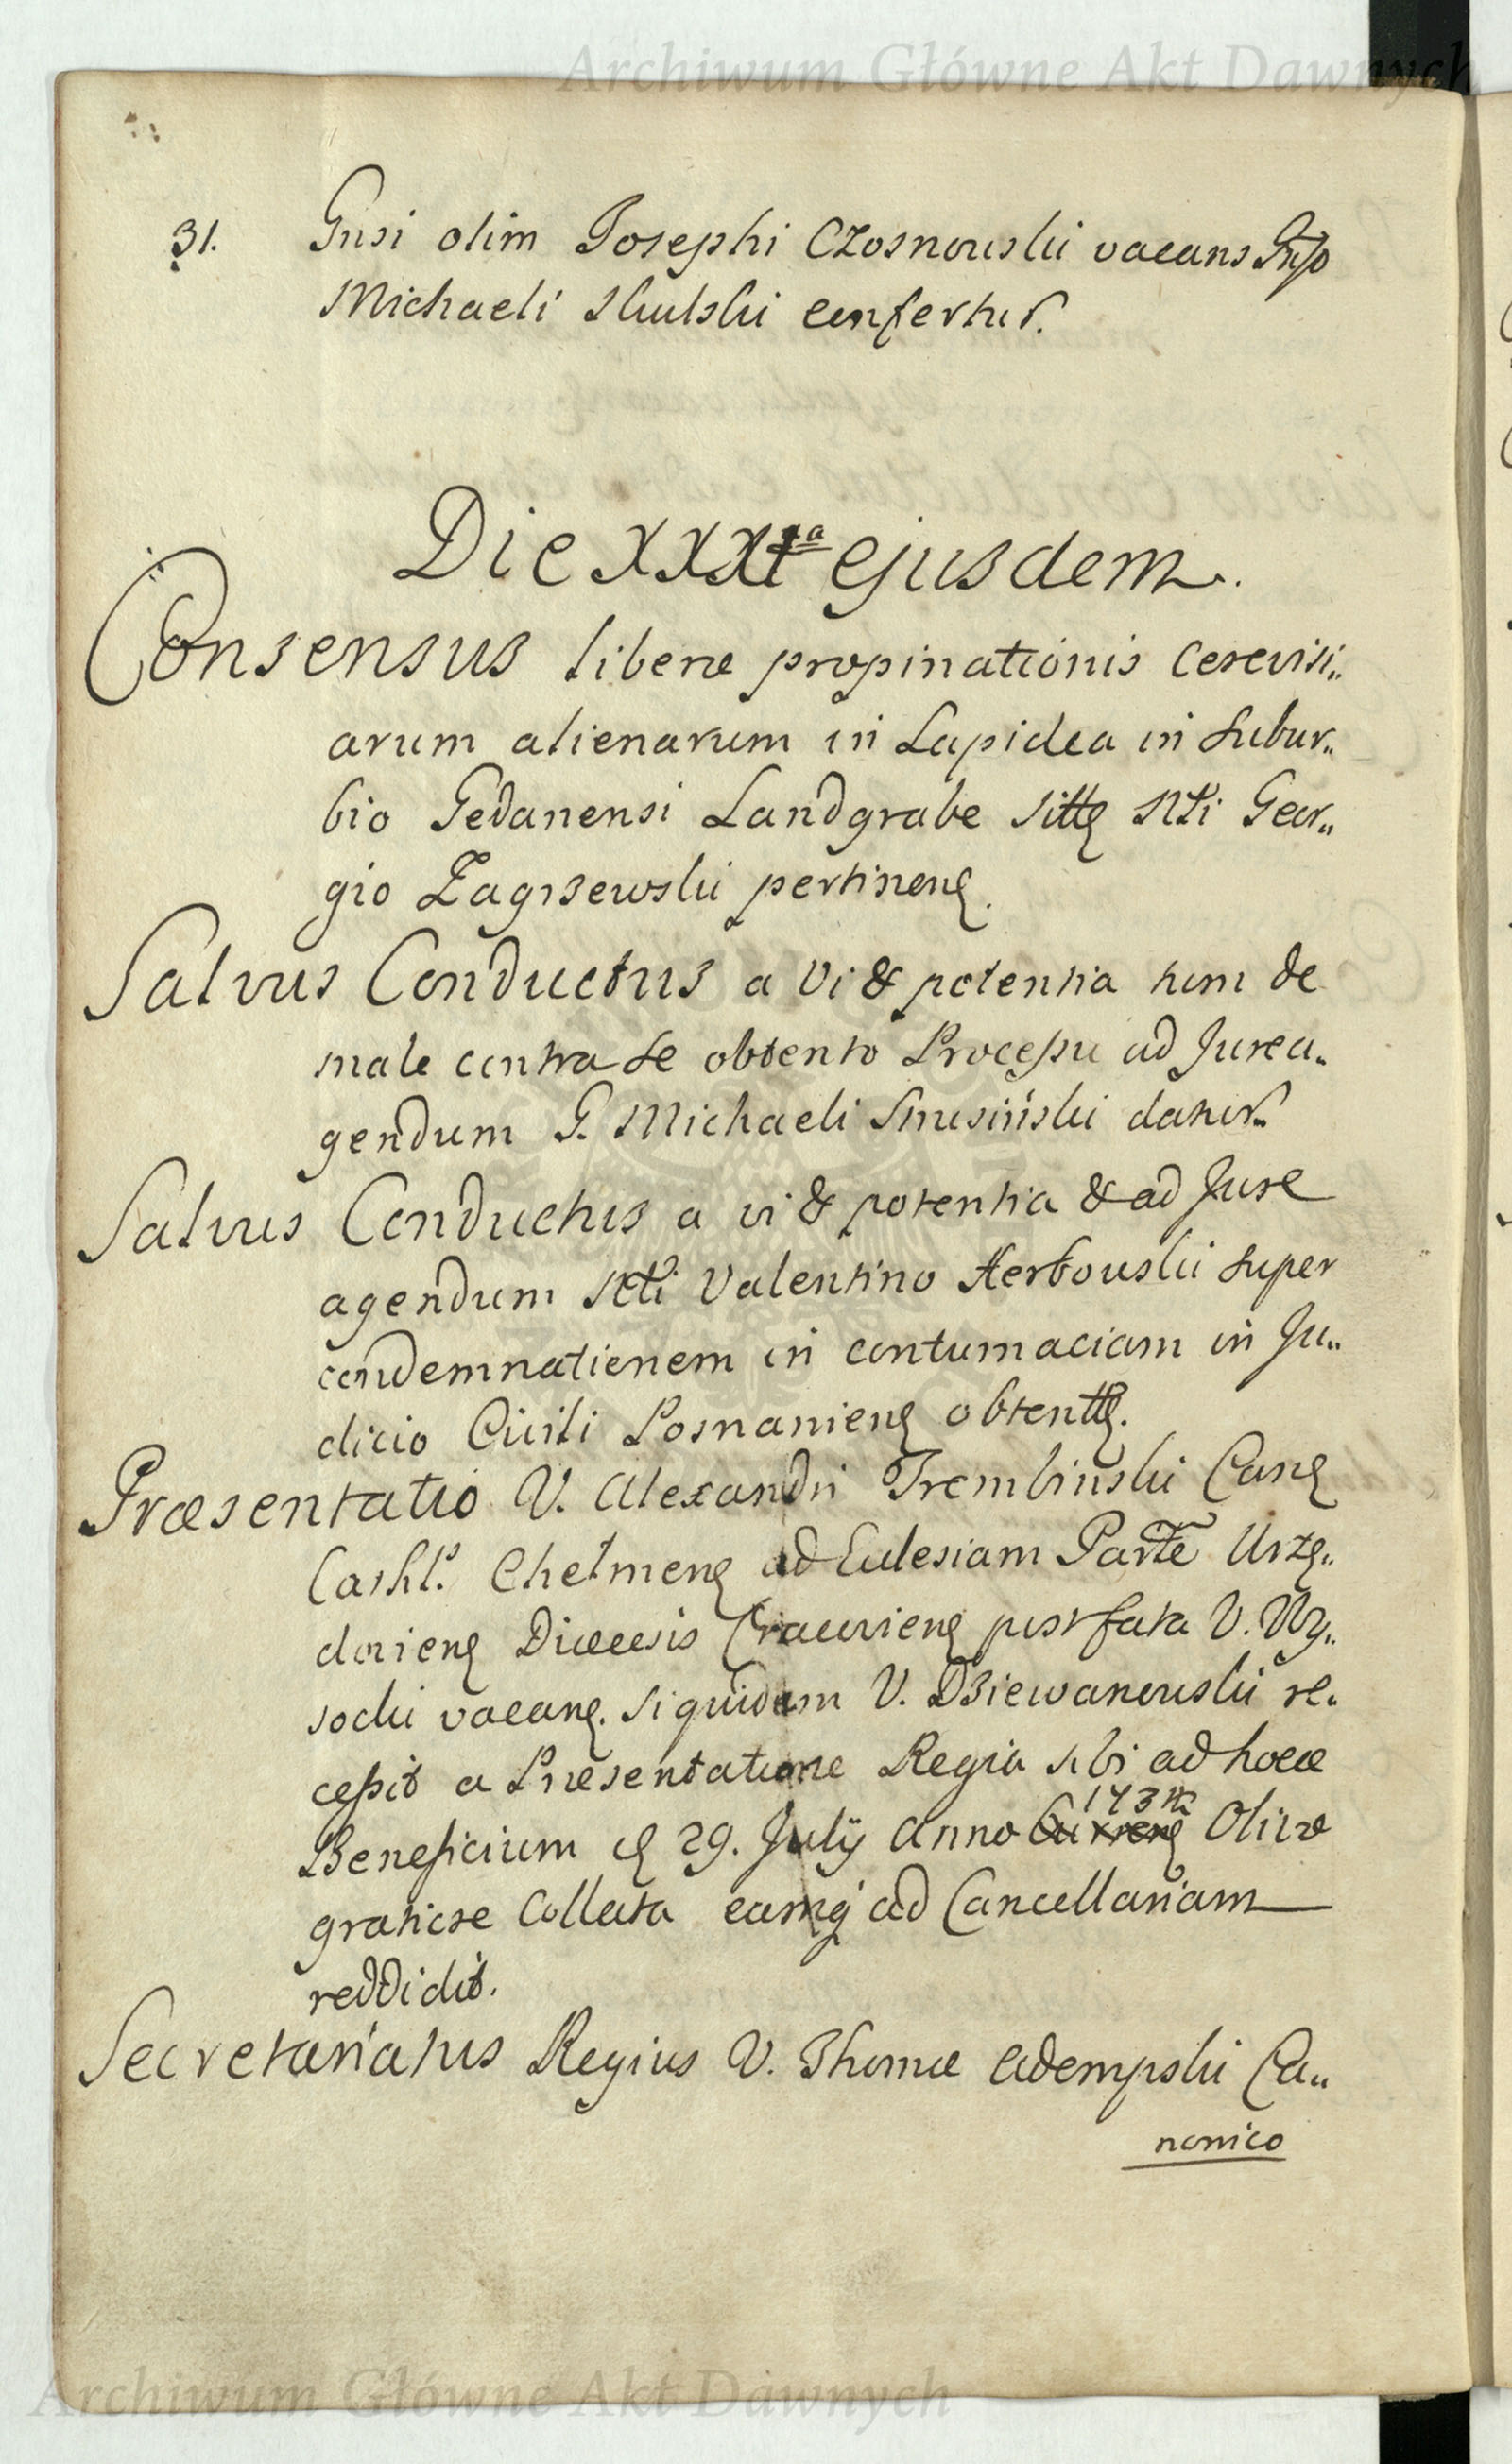 Archiwum Główne Akt Dawnych
31. Gnsi olim Josephi Czosnowski vacans Gnso
Michaeli Skulski confertur.
Die XXXI ma ejusdem.
Consensus liberæ propinationis Cerevisi„
arum alienarum in Lapidea in Subur„
bio Gedanensi Landgrabe sittę Ntti Geor„
gio Zagrzewski pertinenę.
Salvus Conductus a vi & potentia tum de
male contra se obtento Processu ad Jure a„
gendum G. Michaeli Smusiński datur.
Salvus Conductus a vi & potentia & ad Jure
agendum Ntti Valentino Herbowski super
condemnationem in contumaciam in Ju„
dicio Civili Posnanienę obtenttę.
Præsentatio V. Alexandri Trembinski Canę
Cathl. Chełmenę ad Ecclesiam Parłe Urzę„
dovienę Diœcesis Cracovienę post fata V. Wy„
socki vacanę. siquidem V. Dziewanowski re„
cessit a Præsentatione Regia sibi ad hocce
Beneficium ę 29. Julÿ Anno Currenę 1734 Olivæ
graticse Collata eamq ad Cancellariam
reddidit.
Secretariatus Regius V. Thomæ Adempski Ca„
nonico
Archiwum Główne Akt Dawnych